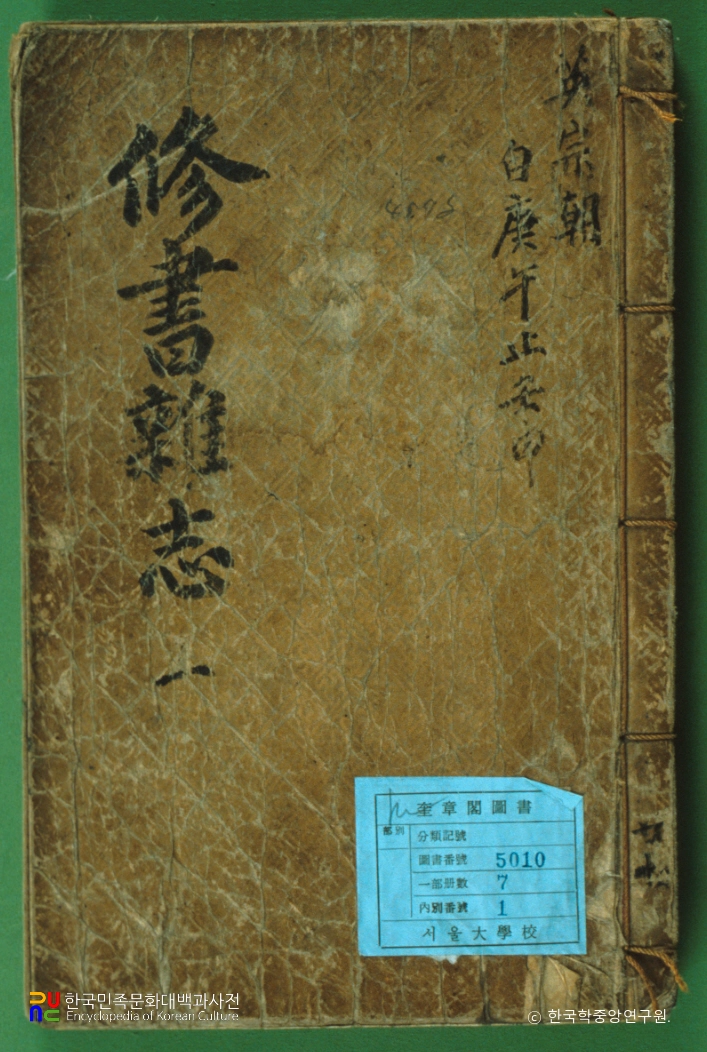 英宗朝
自庚午止申
修書雜志 一
奎章閣圖書
部別
分類記號
圖書番號 5010
一部册數 7
內別番號 1
서울大學校
한국민족문화대백과사전
Encyclopedia of Korean Culture
© 한국학중앙연구원.